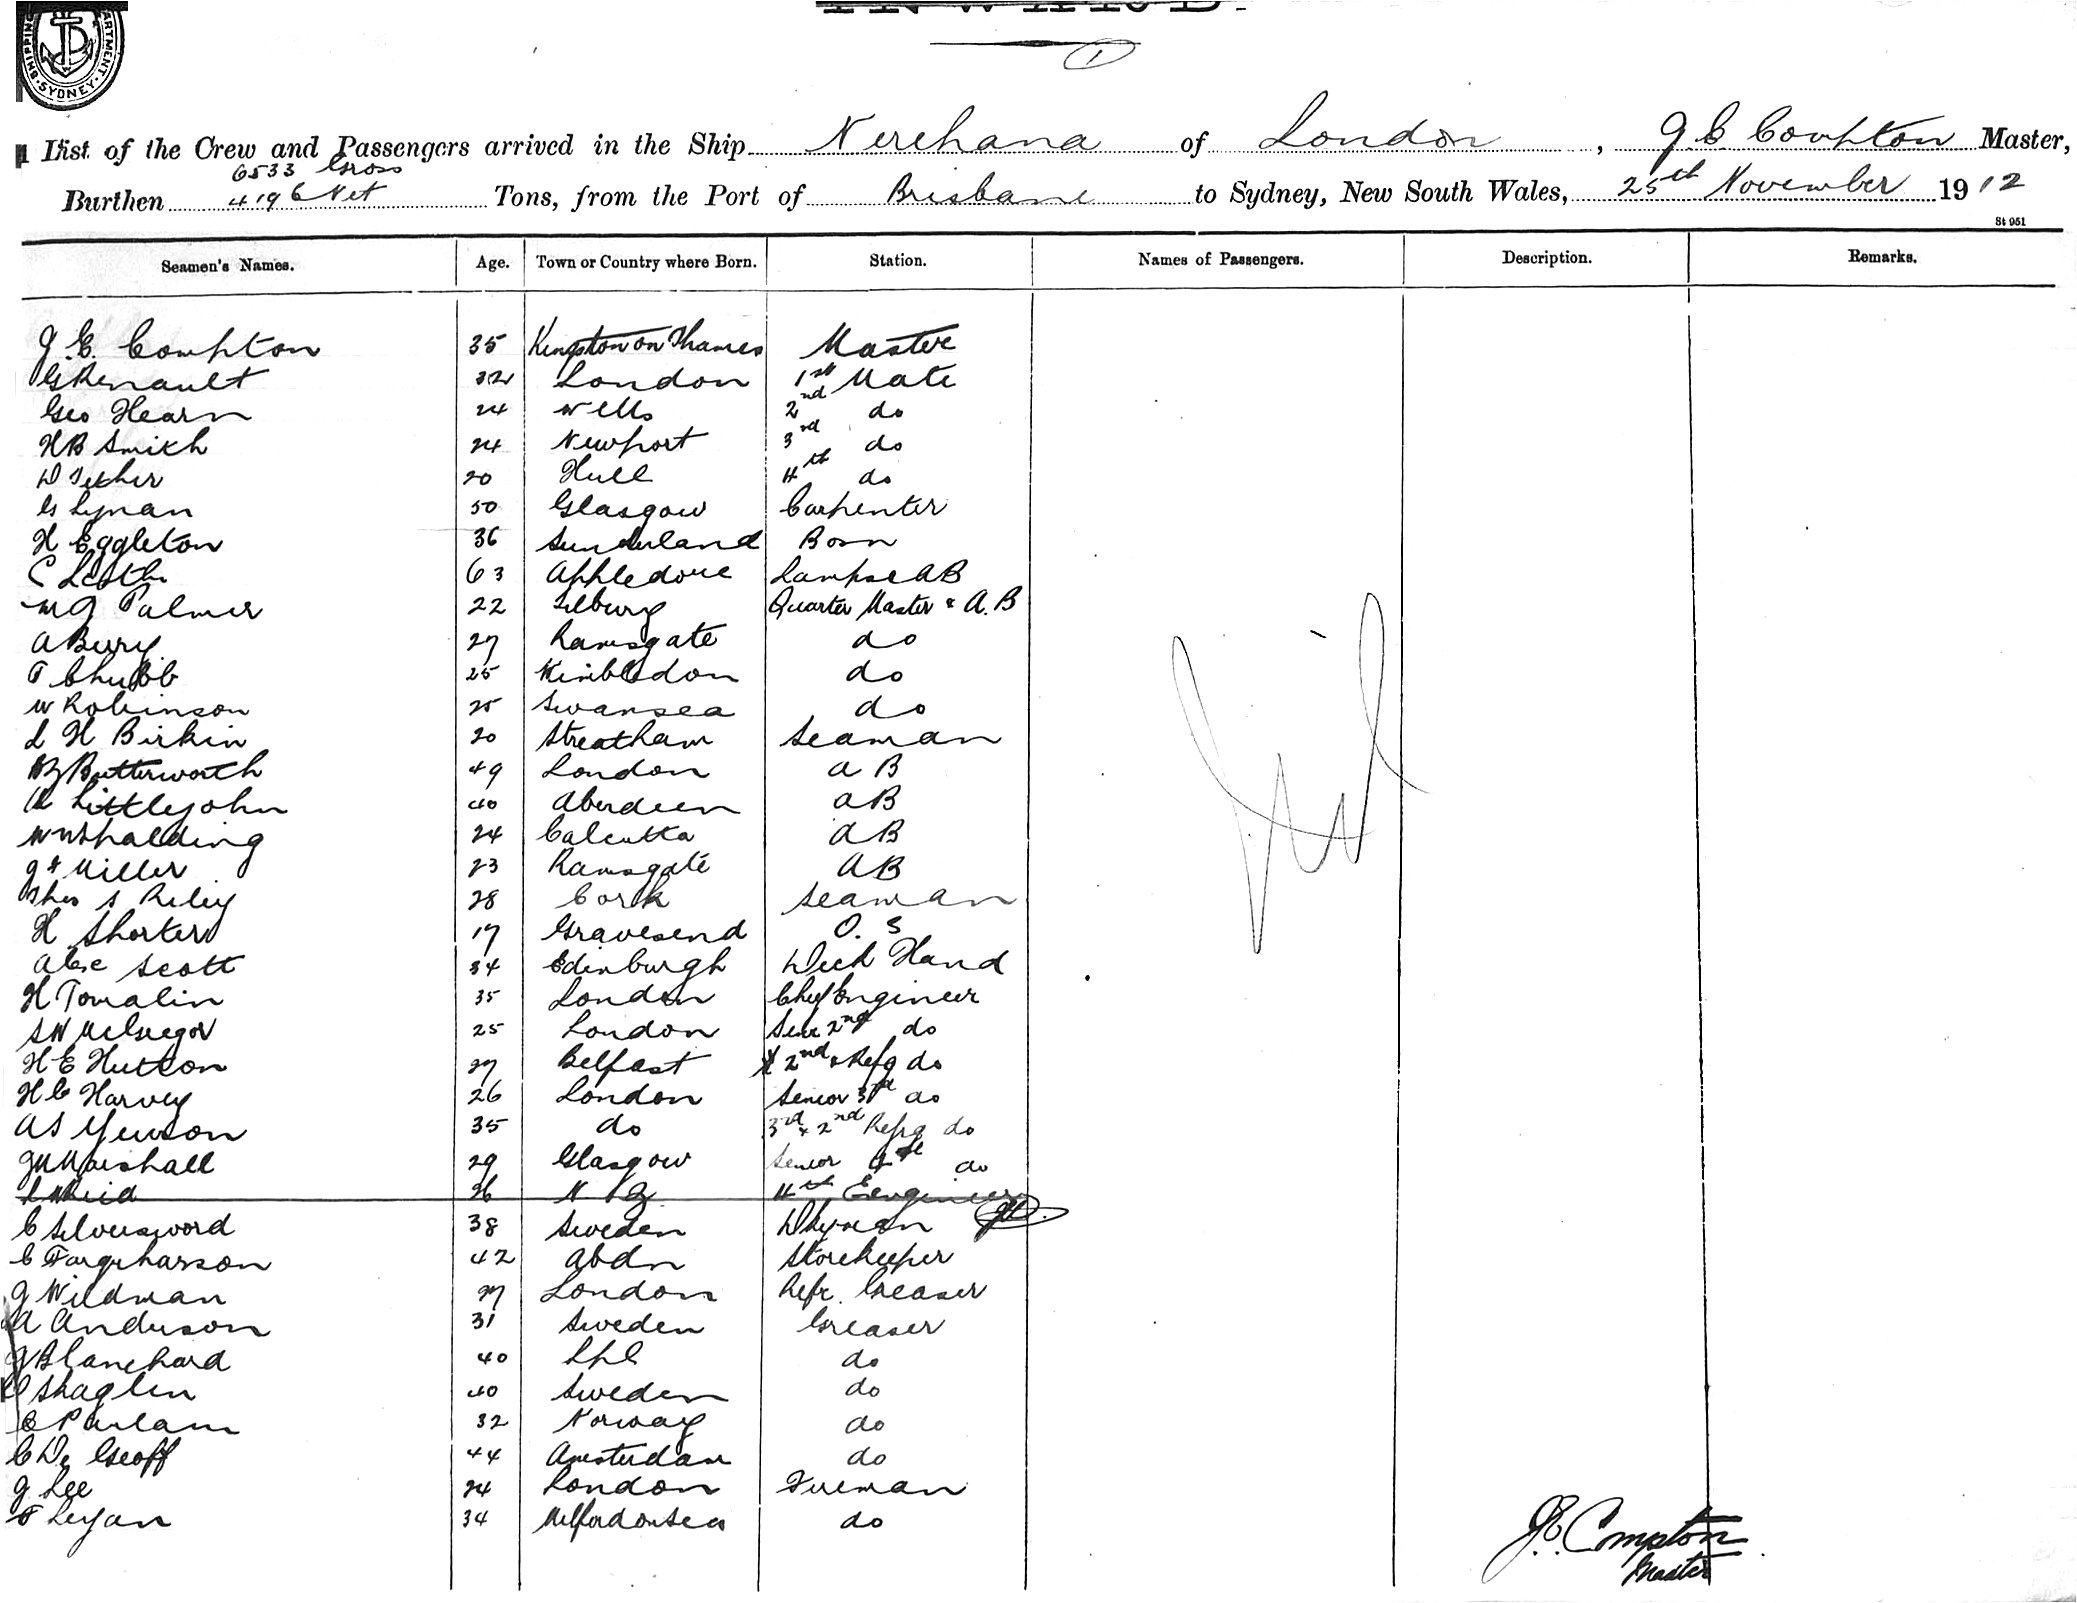 SHIPPING DEPARTMENT. SYDNEY.
INWARD.
1
List of the Crew and Passengers arrived in the Ship Nerehana of London, J. E. Compton Master,
6533 Gross
Burthen 4196 Net Tons, from the Port of Brisbane to Sydney, New South Wales, 25th November 1912
St 951
Seamen's Names. Age. Town or Country where Born. Station. Names of Passengers. Description. Remarks.
J. E. Compton 35 Kingston on Thames Master
G Renault 32 London 1st Mate
Geo Hearn 24 Wells 2nd do
H B Smith 24 Newport 3rd do
D Tether 20 Hull 4th do
G Lynan 50 Glasgow Carpenter
H Eggleton 36 Sunderland Bosn
C 63 Appledore Lamps & AB
W G Palmer 22 Quarter Master & A.B
A Berry 27 Ramsgate do
T Chubb 25 Wimbledon do
W Robinson 25 Swansea do
L H Birkin 20 Streatham Seaman
Butterworth 49 London A B
A Littlejohn 40 Aberdeen AB
W Spalding 24 Calcutta AB
J F Miller 23 Ramsgate AB
Thos S Riley 28 Cork Seaman
H Shorter 17 Gravesend O. S
Alex Scott 34 Edinburgh Deck Hand
H Tomalin 35 London Chief Engineer
S W McGregor 25 London Senr 2nd do
H E Hutton 27 Belfast 2nd & Refg do
H C Harvey 26 London Senior 3rd do
A S Yewson 35 do 3rd & 2nd Refrg do
J M Marshall 29 Glasgow Senior 4th do
L Reid 26 N Z 4th Engineer
C Silversword 38 Sweden Dkyman
C Farquharson 42 Abdn Storekeeper
J Wildman 27 London Refr. Greaser
A Anderson 31 Sweden Greaser
J Blanchard 40 Lpl do
Shaglin 40 Sweden do
C Parlam 32 Norway do
C De Groff 44 Amsterdam do
J Lee 24 London Fireman
F Leyan 34 Milford on Sea do
Nil
J. E. Compton
Master